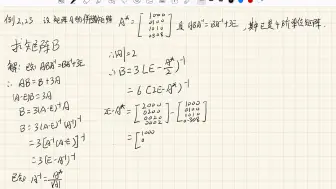 例2.23 设矩阵A的伴随矩阵 A* = [1000 0100 1010 0-308] 且 ABA⁻¹=BA⁻¹+3E, 其中E是4阶单位矩阵.
求矩阵B
解: ABA⁻¹=BA⁻¹+3E
∴ AB=B+3A
(A-E)B=3A
B=3(A-E)⁻¹A
B=3(A-E)⁻¹(A⁻¹)⁻¹
=3[A⁻¹(A-E)]⁻¹
=3[E-A⁻¹]⁻¹
A⁻¹=A*/|A|
∴|A|=2
∴B=3(E-A*/2)⁻¹
=6(2E-A*)⁻¹
2E-A*=[2000 0200 0020 0002]-[1000 0100 1010 0-308]
=[1000
0